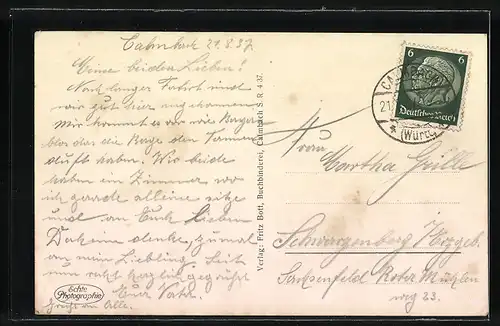 Calmbach 21.8.37
Meine beiden Lieben!
Nach langer Fahrt sind
wir gut hier angekommen
Mir kommt es vor wie Berge
blos das die Berge den Tannen
duft haben. Wir beide
haben ein Zimmer, wo
ich gerade alleine sitze
und an Euch Lieben
Daheim denke, zumal
an mein Liebling. Seit
nun recht herzlich gegrüßt
Euer Vater.
Gruß an Alle.
Echte
Photographie
Verlag: Fritz Bott, Buchbinderei, Calmbach S. R 4 37.
6 6
Deutsches Reich
CALMBACH
21.
(Württ.)
Frau
Martha Grille
Schwarzenberg / Erzgeb.
Sachsenfeld Roter Mühlen
weg 23.